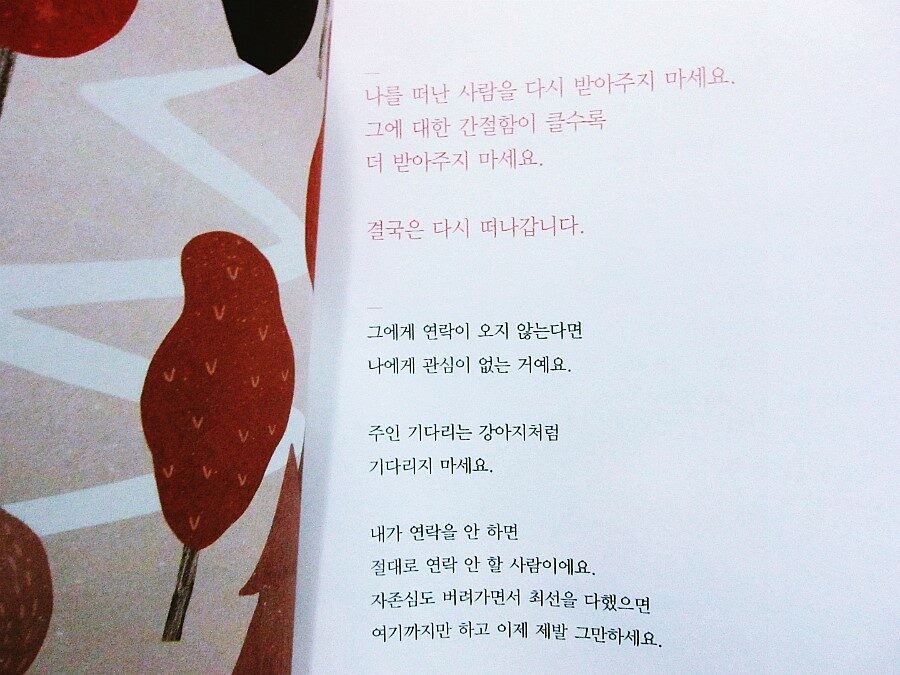 나를 떠난 사람을 다시 받아주지 마세요.
그에 대한 간절함이 클수록
더 받아주지 마세요.
결국은 다시 떠나갑니다.
그에게 연락이 오지 않는다면
나에게 관심이 없는 거예요.
주인 기다리는 강아지처럼
기다리지 마세요.
내가 연락을 안 하면
절대로 연락 안 할 사람이에요.
자존심도 버려가면서 최선을 다했으면
여기까지만 하고 이제 제발 그만하세요.